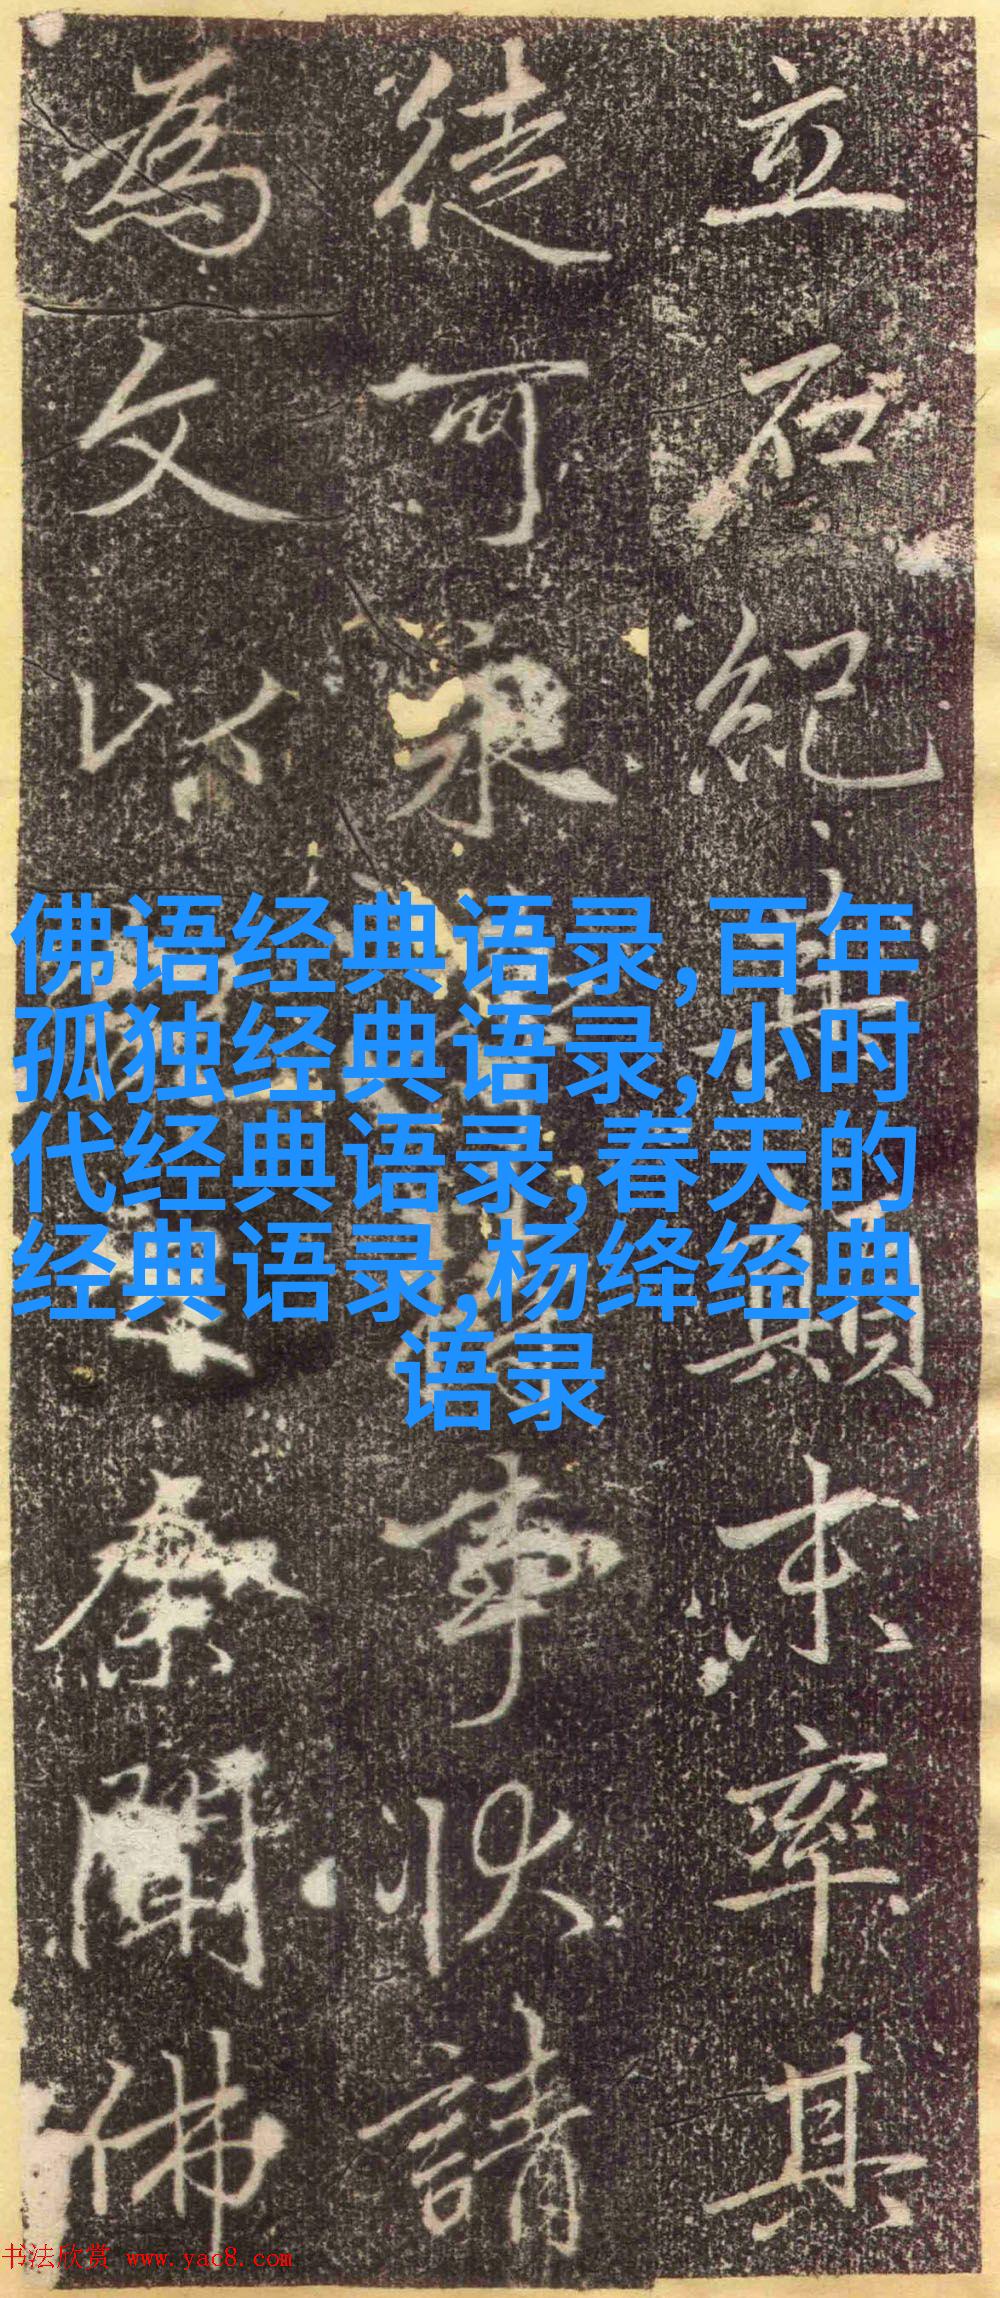 立石紀其顛末率其
徒可事狀請
為文以聞佛
佛语经典语录,百年
孤独经典语录,小时
代经典语录,春天的
经典语录,杨绛经典
语录
书法欣赏 www.yac8.com